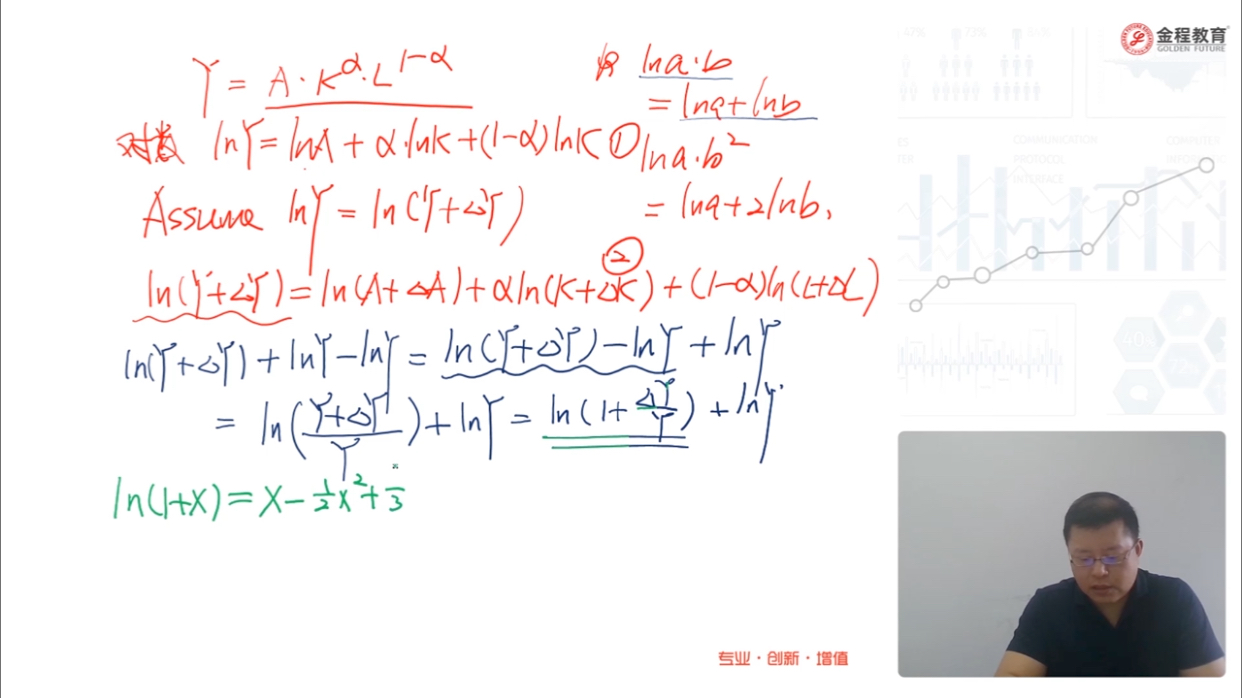 金程教育
GOLDEN FUTURE
Y = A·K^α·L^1-α
ln a·b
= ln a + ln b
对数 lnY = lnA + α·lnK + (1-α) lnK ①
ln a·b²
= ln a + 2 ln b,
Assume lnY = ln(Y+ΔY)
②
ln(Y+ΔY) = ln(A+ΔA) + α ln(K+ΔK) + (1-α) ln(L+ΔL)
ln(Y+ΔY) + lnY - lnY = ln(Y+ΔY) - lnY + lnY
= ln((Y+ΔY)/Y) + lnY = ln(1+ ΔY/Y) + lnY
ln(1+X) = X - 1/2 X² + 1/3
COMMUNICATION
PROTOCOL
INTERFACE
专业·创新·增值